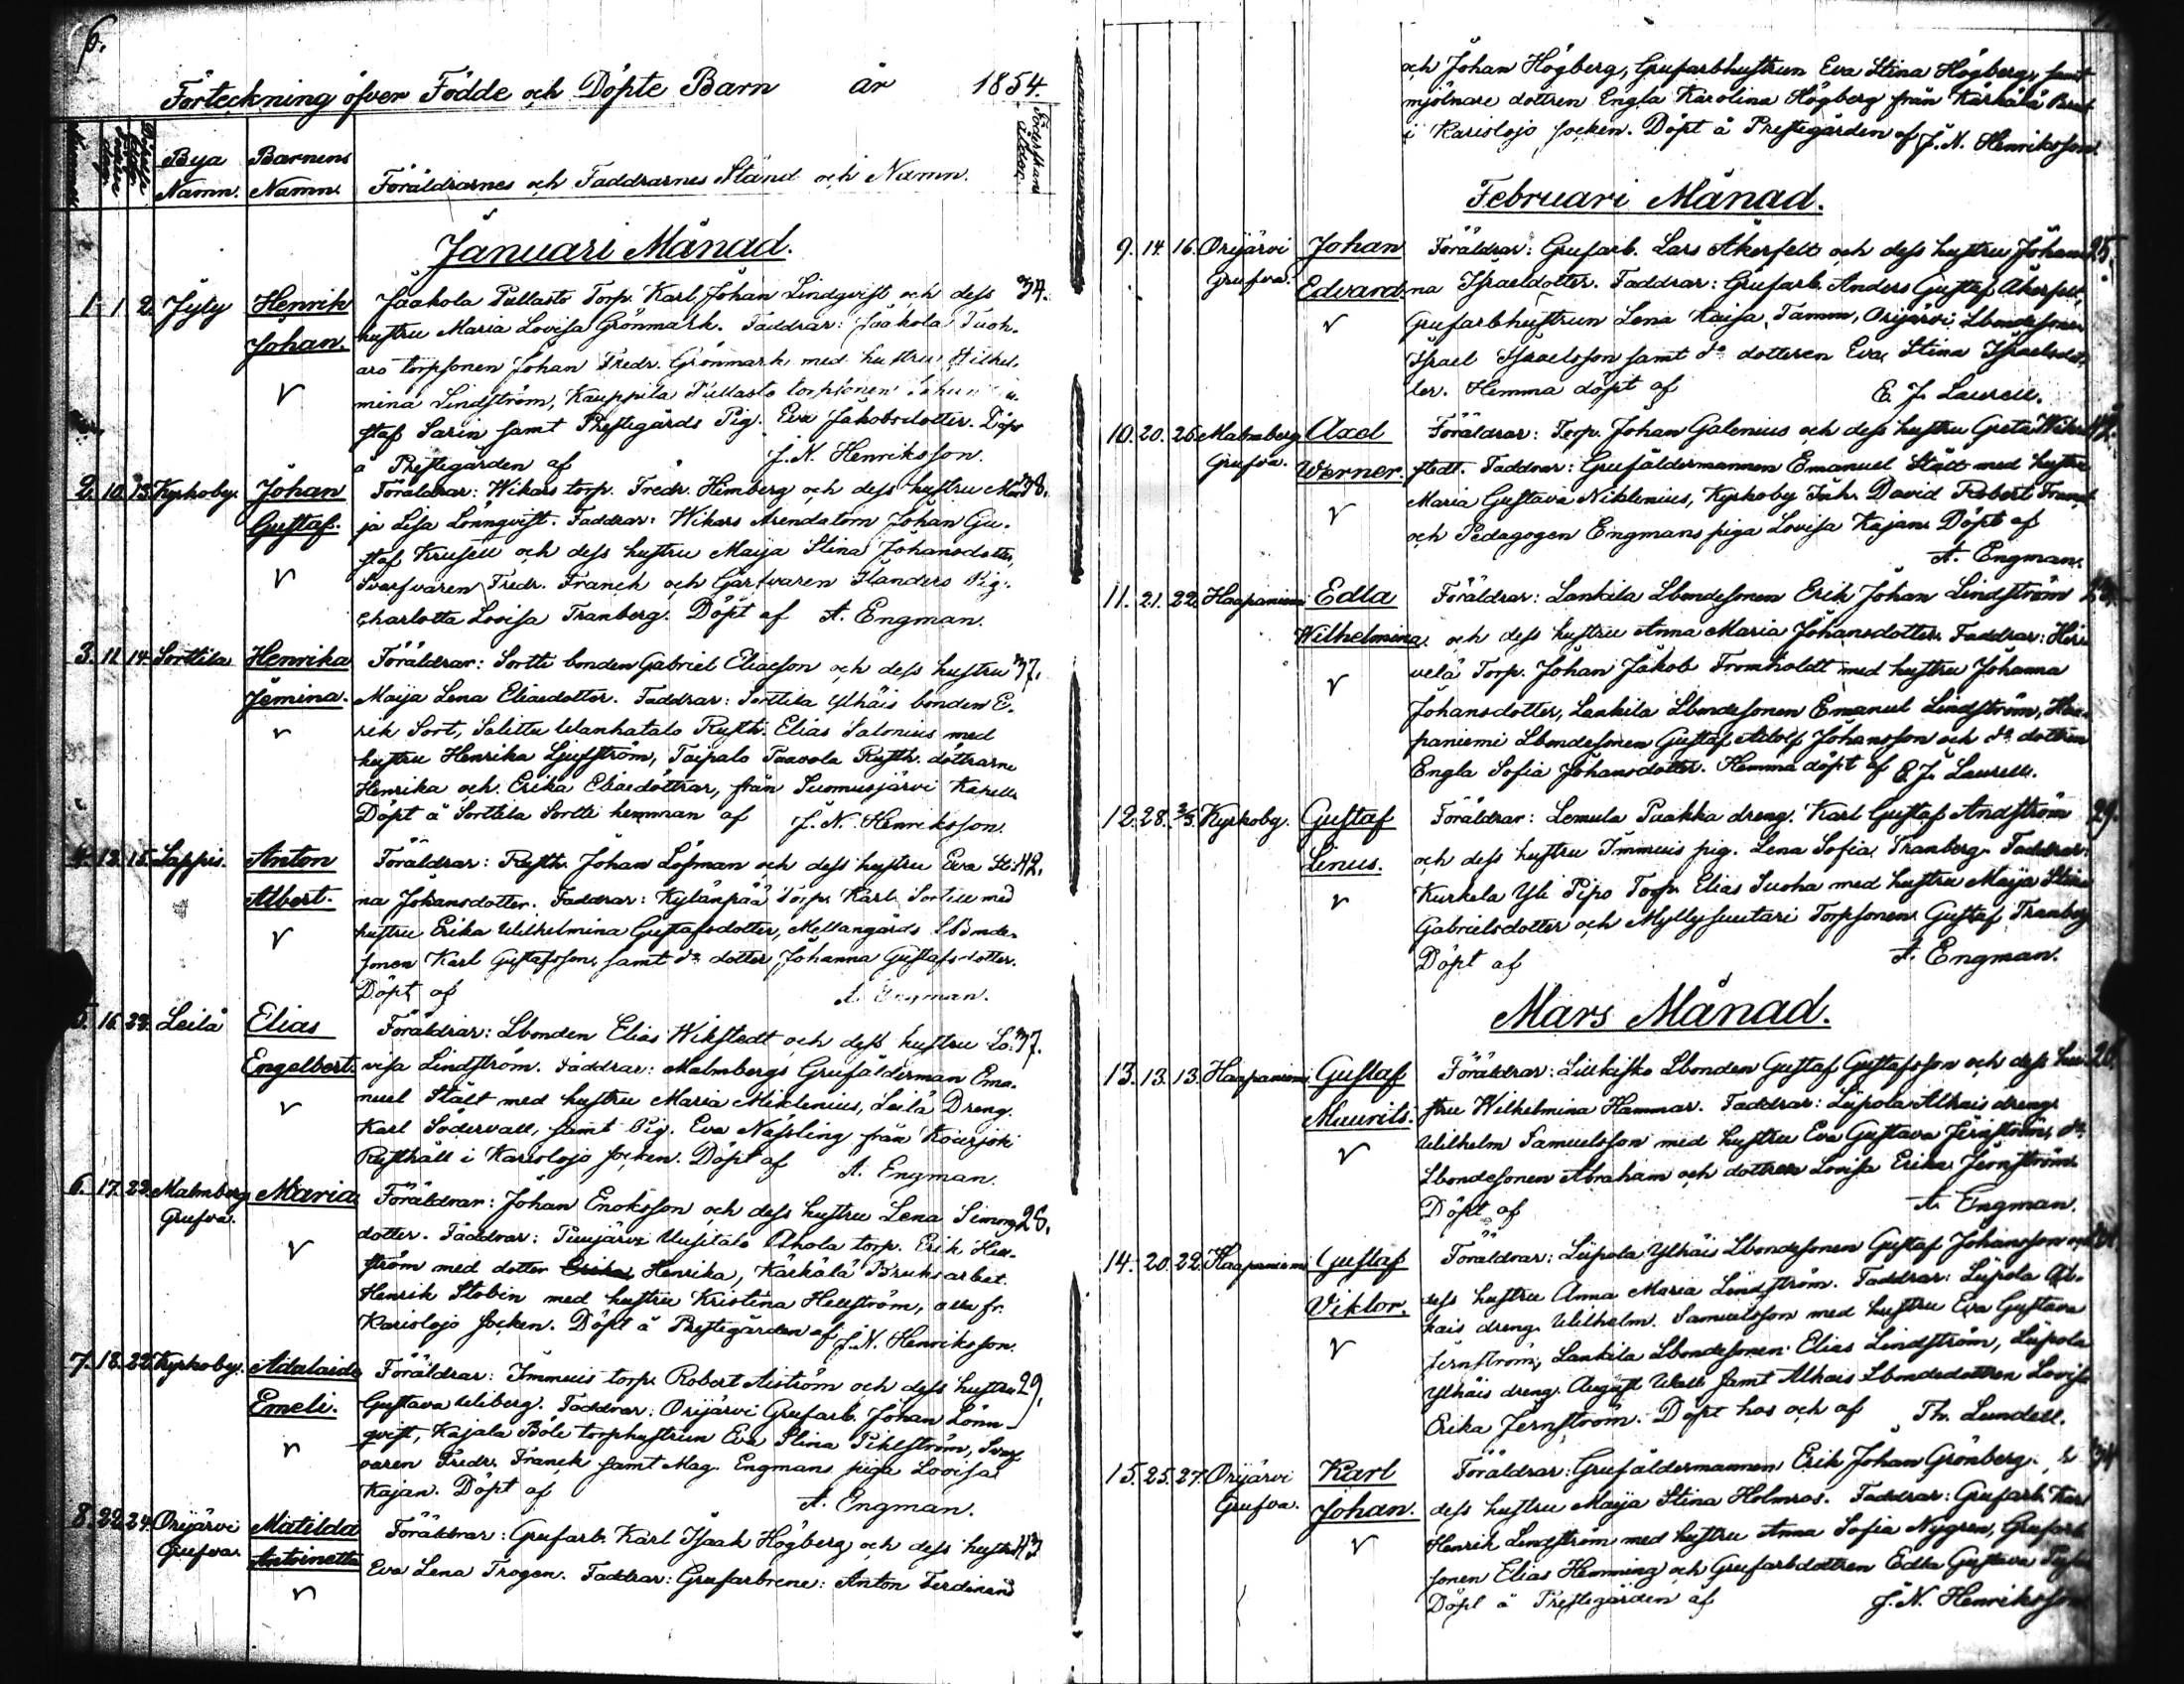 6.
Förteckning öfver Födde och Döpte Barn år 1854.
Bya Namn. Barnens Namn. Föräldrarnes och Faddrarnes Stånd och Namn.
Januari Månad.
1. 1 2. Jyly Henrik Johan. Jaakola Pullasto Torp. Karl Johan Lindqvist och dess 34.
hustru Maria Lovisa Grönmark. Faddrar: Jaakola Tuoh-
aro torpsonen Johan Fredr. Grönmark med hustru Wilhel-
mina Lindström, Kauppila Pullasto torpsonen
staf Sarin samt Prestegårds Pig. Eva Jakobsdotter. Döpt
å Prestegården af J. N. Henriksson.
2. 10. 13. Kyrkoby. Johan Gustaf. Föräldrar: Wikars torp. Fredr. Himberg och dess hustru Mar- 38.
ja Lisa Lönnqvist. Faddrar: Wikars Arendatorn Johan Gu-
staf Krusell och dess hustru Maija Stina Johansdotter,
Svarfvaren Fredr. Franck och Garfvaren Flanders Pig.
Charlotta Lovisa Tranberg. Döpt af A. Engman.
3. 11 14 Sorttila Henrika Jemina. Föräldrar: Sortti bonden Gabriel Eliasson och dess hustru 37.
Maija Lena Eliaedotter. Faddrar: Sorttila Ylhäis bonden E-
rik Sort, Salittu Wanhatalo Rusth. Elias Salonius med
hustru Henrika Ljufström, Taipalo Paavola Rusth. döttrarne
Henrika och Erika Eliaedöttrar, från Suomusjärvi Kapell.
Döpt å Sorttila Sortti hemman af J. N. Henriksson.
4. 13. 15. Lappis. Anton Albert. Föräldrar: Rusth. Johan Löfman och dess hustru Eva Sti- 42.
na Johansdotter. Faddrar: Kylänpää Torp. Karl Sortill med
hustru Erika Wilhelmina Gustafsdotter, Mellangårds Lbonde-
sonen Karl Gustafsson, samt do dotter Johanna Gustafsdotter.
Döpt af A. Engman.
5. 16. 22. Leilä Elias Engelbert. Föräldrar: Lbonden Elias Wikstedt och dess hustru Lo- 37.
visa Lindström. Faddrar: Malmbergs Grufålderman Ema-
nuel Stält med hustru Maria Miklenius, Leilä Dreng.
Karl Södervall, samt Pig. Eva Nässling från Kourjoki
Rusthåll i Karislojo socken. Döpt af A. Engman.
6. 17. 23. Malmberg Grufva. Maria Föräldrar: Johan Enoksson och dess hustru Lena Simons- 25.
dotter. Faddrar: Puujärvi Uusitalo Ahola torp. Erik Hell-
ström med dotter Henrika, Kärkälä Bruksarbet.
Henrik Stobin med hustru Kristina Hellström, alla fr.
Karislojo socken. Döpt å Prestegården af J. N. Henriksson.
7. 18. 22. Kyrkoby. Adalaida Emeli. Föräldrar: Immuis torp. Robert Aiström och dess hustru 29.
Gustava Wiberg. Faddrar: Orijärvi Grufarb. Johan Lönn-
qvist, Kajala Böle torphustrun Eva Stina Pihlström, Svarf-
varen Fredr. Franck samt Mag. Engmans piga Lovisa
Kajan. Döpt af A. Engman.
8. 22. 24. Orijärvi Grufva. Matilda Antoinetta Föräldrar: Grufarb. Karl Isaak Högberg och dess hustru 43
Eva Lena Trogen. Faddrar: Grufarbrene: Anton Ferdinand
och Johan Högberg, Grufarbhustrun Eva Stina Högberg, samt
mjölnare dottren Engla Karolina Högberg från Kärkälä Bruk
i Karislojo socken. Döpt å Prestegården af J. N. Henriksson.
Februari Månad.
9. 14. 16. Orijärvi Grufva. Johan Edvard. Föräldrar: Grufarb. Lars Åkerfelt och dess hustru Johan- 25.
na Israelsdotter. Faddrar: Grufarb. Anders Gustaf Åkerfelt,
Grufarbhustrun Lena Kaisa Tamm, Orijärvi Lbondesonen
Israel Israelsson samt do dotteren Eva Stina Israelsdot-
ter. Hemma döpt af E. J. Laurell.
10. 20. 26. Malmberg Grufva. Axel Werner. Föräldrar: Torp. Johan Galenius och dess hustru Greta Wik-
stedt. Faddrar: Grufåldermannen Emanuel Stält med hustru
Maria Gustava Niklenius, Kyrkoby Inh. David Robert Franck
och Pedagogen Engmans piga Lovisa Kajan. Döpt af
A. Engman.
11. 21. 22. Haapaniemi Edla Wilhelmina. Föräldrar: Lankila Lbondesonen Erik Johan Lindström
och dess hustru Anna Maria Johansdotter. Faddrar: Hir-
velä Torp. Johan Jakob Fromholdt med hustru Johanna
Johansdotter, Lankila Lbondesonen Emanuel Lindström, Haa-
paniemi Lbondesonen Gustaf Adolf Johansson och do dottren
Engla Sofia Johansdotter. Hemma döpt af E. J. Laurell.
12. 28. 2/3. Kyrkoby. Gustaf Linus. Föräldrar: Lemula Paakka dreng. Karl Gustaf Andström 29.
och dess hustru Immuis pig. Lena Sofia Tranberg. Faddrar:
Kurkela Yli Pipo Torp. Elias Suoha med hustru Maija Stina
Gabrielsdotter och Myllysuutari Torpsonen Gustaf Tranberg
Döpt af A. Engman.
Mars Månad.
13. 13. 13. Haapaniemi Gustaf Maurits. Föräldrar: Liukisko Lbonden Gustaf Gustafsson och dess hu- 26.
stru Wilhelmina Hammar. Faddrar: Liipola Alhais dreng.
Wilhelm Samuelsson med hustru Eva Gustava Jernström, do
Lbondesonen Abraham och dottren Lovisa Erika Jernström.
Döpt af A. Engman.
14. 20. 22. Haapaniemi Gustaf Viktor. Föräldrar: Liipola Ylhäis Lbondesonen Gustaf Johansson och
dess hustru Anna Maria Lindström. Faddrar: Liipola Al-
hais dreng. Wilhelm Samuelsson med hustru Eva Gustava
Jernström, Lankila Lbondesonen Elias Lindström, Liipola
Ylhäis dreng. August Wall samt Alhais Lbondedottren Lovisa
Erika Jernström. Döpt hos och af Th. Lundell.
15. 25. 27. Orijärvi Grufva. Karl Johan. Föräldrar: Grufåldermannen Erik Johan Grönberg, 34
dess hustru Maija Stina Holmros. Faddrar: Grufarb. Karl
Henrik Lindström med hustru Anna Sofia Nygren, Grufarb.
sonen Elias Hemming och Grufarbdottren Edla Gustava
Döpt å Prestegården af J. N. Henriksson